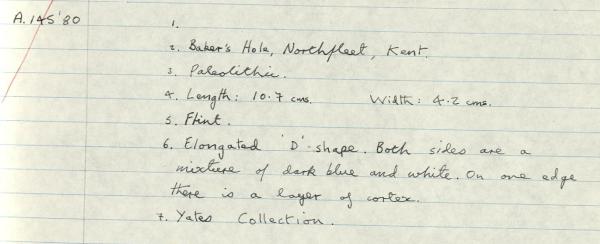 A.145'80
1.
2. Baker's Hole, Northfleet, Kent.
3. Paleolithic.
4. Length: 10.7 cms. Width: 4.2 cms.
5. Flint.
6. Elongated 'D'-shape. Both sides are a
mixture of dark blue and white. On one edge
there is a layer of cortex.
7. Yates Collection.